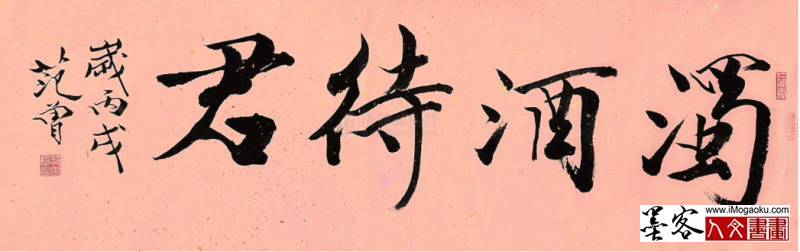 濁酒待君
歲丙戌
范曾
墨客
www.iMogaoku.com
人文書畫